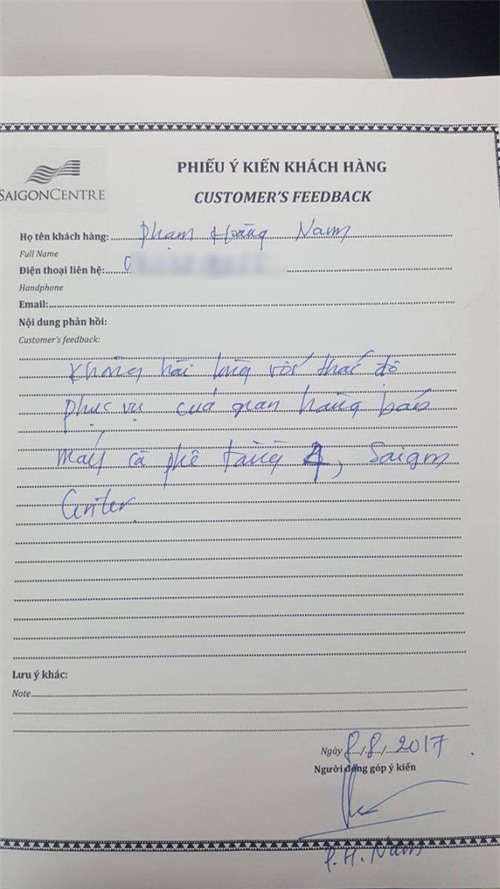 SAIGONCENTRE
PHIẾU Ý KIẾN KHÁCH HÀNG
CUSTOMER'S FEEDBACK
Họ tên khách hàng: Phạm Hoàng Nam
Full Name
Điện thoại liên hệ: 0
Handphone
Email:
Nội dung phản hồi:
Customer's feedback:
Không hài lòng với thái độ
phục vụ của gian hàng bán
máy cà phê tầng 4, Saigon
Center.
Lưu ý khác:
Note
Ngày 8/8/2017
Người đóng góp ý kiến
P.H. Nam